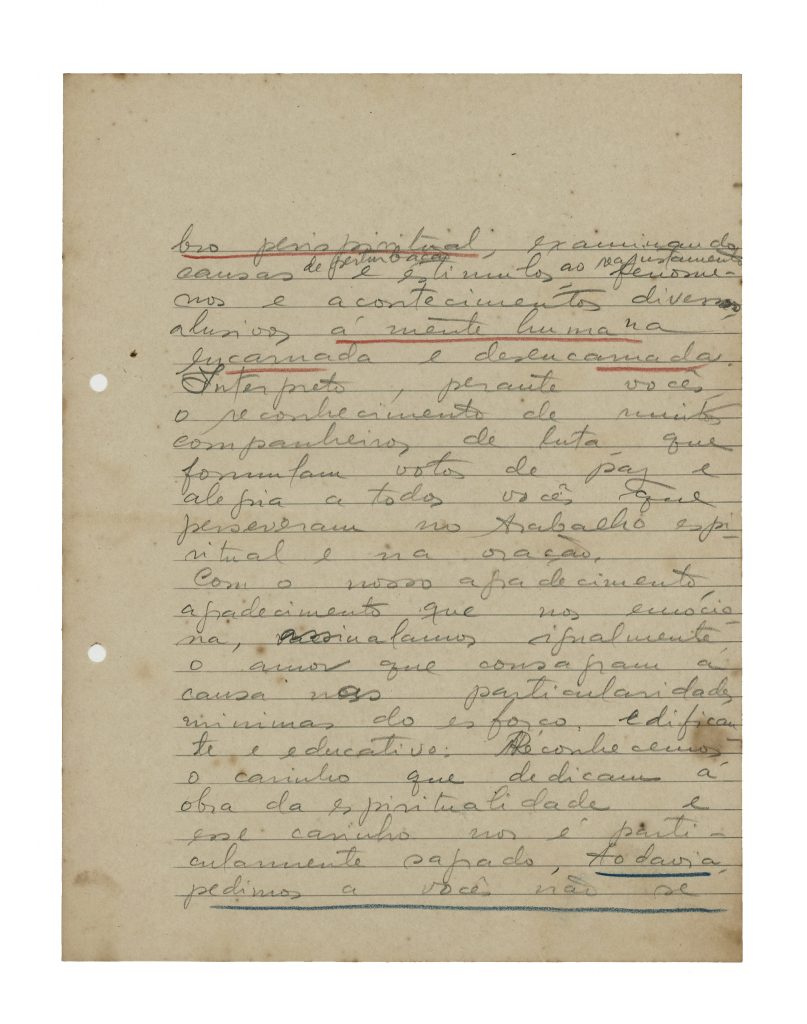 bro perispiritual, examinando
causas de perturbação e estimulos ao reajustamento fenome-
nos e acontecimentos diversos,
alusivos á mente humana
encarnada e desencarnada.
Interpreto, perante vocês,
o reconhecimento de muitos
companheiros de luta que
formulam votos de paz e
alegria a todos vocês que
perseveram no trabalho espi-
ritual e na oração.
Com o nosso agradecimento,
agradecimento que nos emocio-
na, assinalamos igualmente
o amor que consagram á
causa nas particularidades
minimas do esforço. Edifican-
te e educativo. Reconhecemos
o carinho que dedicam á
obra da espiritualidade e
esse carinho nos é parti-
cularmente sagrado, todavia,
pedimos a vocês não se